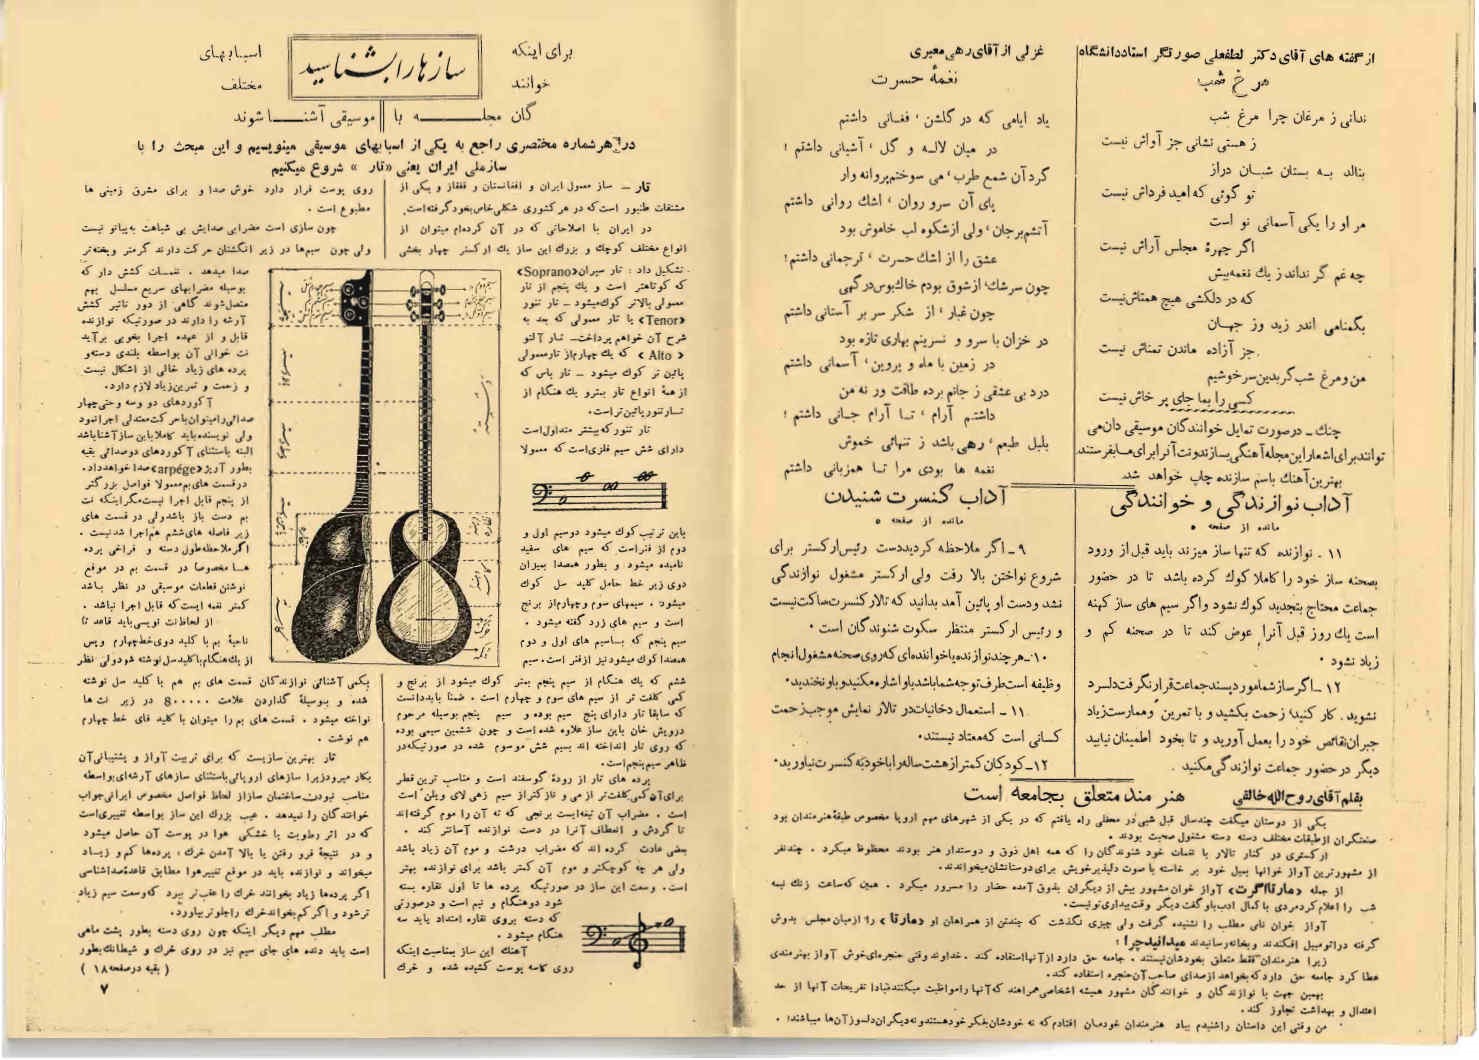 از گفته های آقای دکتر لطفعلی صورتگر استاد دانشگاه
مرغ شب
ندانی ز مرغان چرا مرغ شب
ز هستی نشانی جز آواش نیست
بنالد به بستان شبان دراز
تو گوئی که امید فرداش نیست
مر او را یکی آسمانی نو است
اگر چهرهٔ مجلس آراش نیست
چه غم گر نداند ز یك نغمه بیش
که در دلکشی هیچ همتاش نیست
بگمنامی اندر زید وز جهان
جز آزاده ماندن تمناش نیست
من و مرغ شب گر بدین سرخوشیم
کسی را بما جای پرخاش نیست
چنگ ـ درصورت تمایل خوانندگان موسیقی دان می
توانند برای اشعار این مجله آهنگی بسازند و نت آنرا برای ما بفرستند
بهترین آهنك باسم سازنده چاپ خواهد شد
آداب نوازندگی و خوانندگی
مانده از صفحه ٥
١١ ـ نوازنده که تنها ساز میزند باید قبل از ورود
بصحنه ساز خود را کاملا کوك کرده باشد تا در حضور
جماعت محتاج بتجدید کوك نشود واگر سیم های ساز کهنه
است یك روز قبل آنرا عوض کند تا در صحنه کم و
زیاد نشود .
١٢ ـ اگر ساز شما مورد پسند جماعت قرار نگرفت دلسرد
نشوید. کار کنید؛ زحمت بکشید و با تمرین و ممارست زیاد
جبران نقائص خود را بعمل آورید و تا بخود اطمینان نیابید
دیگر در حضور جماعت نوازندگی مکنید .
غزلی از آقای رهی معیری
نغمهٔ حسرت
یاد ایامی که در گلشن ، فغانی داشتم
در میان لاله و گل ، آشیانی داشتم ؛
گرد آن شمع طرب ، می سوختم پروانه وار
پای آن سرو روان ، اشك روانی داشتم
آتشم برجان ، ولی از شکوه لب خاموش بود
عشق را از اشك حسرت ، ترجمانی داشتم ؛
چون سرشك ، از شوق بودم خاك بوس درگهی
چون غبار ، از شکر سر بر آستانی داشتم
در خزان با سرو و نسرینم بهاری تازه بود
در زمین با ماه و پروین ، آسمانی داشتم
درد بی عشقی ز جانم برده طاقت ور نه من
داشتم آرام ، تا آرام جانی داشتم ؛
بلبل طبعم ، رهی باشد ز تنهائی خموش
نغمه ها بودی مرا تا همزبانی داشتم
آداب کنسرت شنیدن
مانده از صفحه ٥
٩ ـ اگر ملاحظه کردید دست رئیس ارکستر برای
شروع نواختن بالا رفت ولی ارکستر مشغول نوازندگی
نشد و دست او پائین آمد بدانید که تالار کنسرت ساکت نیست
و رئیس ارکستر منتظر سکوت شنوندگان است .
١٠ ـ هر چند نوازنده یا خواننده ای که روی صحنه مشغول انجام
وظیفه است طرف توجه شما باشد باو اشاره مکنید و باو نخندید.
١١ ـ استعمال دخانیات در تالار نمایش موجب زحمت
کسانی است که معتاد نیستند.
١٢ ـ کودکان کمتر از هشت ساله را با خود به کنسرت نیاورید.
بقلم آقای روح الله خالقی
هنر مند متعلق بجامعه است
یکی از دوستان میگفت چند سال قبل شبی در محفلی راه یافتم که در یکی از شهرهای مهم اروپا مخصوص طبقهٔ هنرمندان بود
صنعتگران از طبقات مختلف دسته دسته مشغول صحبت بودند .
ارکستری در کنار تالار با نغمات خود شنوندگان را که همه اهل ذوق و دوستدار هنر بودند محظوظ میکرد . چند نفر
از مشهورترین آواز خوانها بمیل خود بر خاسته با صوت دلپذیر خویش برای دوستانشان میخواندند.
از جمله «مارتا اگرت» آواز خوان مشهور بیش از دیگران بشوق آمده حضار را مسرور میکرد . همین که ساعت زنك نیمه
شب را اعلام کرد مردی با کمال ادب باو گفت دیگر وقت بیداری تو نیست.
آواز خوان نامی مطلب را نشنیده گرفت ولی چیزی نگذشت که چند تن از همراهان او «مارتا» را از میان مجلس بدوش
گرفته در اتومبیل افکندند و بخانه رسانیدند میدانید چرا ؛
زیرا هنرمندان فقط متعلق بخودشان نیستند . جامعه حق دارد از آنها استفاده کند . خداوند وقتی حنجره ای خوش آواز بهنرمندی
عطا کرد جامعه حق دارد که بخواهد از صدای صاحب آن حنجره استفاده کند.
بهمین جهت با نوازندگان و خوانندگان مشهور همیشه اشخاصی همراهند که آنها را مواظبت میکنند تا مبادا تفریحات آنها از حد
اعتدال و بهداشت تجاوز کند.
من وقتی این داستان را شنیدم بیاد هنرمندان خودمان افتادم که نه خودشان بفکر خود هستند و نه دیگران دلسوز آن ها میباشند؛ .
سازها را بشناسید
برای اینکه
اسبابهای
خوانند
مختلف
گان مجله با
موسیقی آشنا شوند
در هر شماره مختصری راجع به یکی از اسبابهای موسیقی مینویسیم و این مبحث را با
ساز ملی ایران یعنی «تار» شروع میکنیم
تار ـ ساز معمول ایران و افغانستان و قفقاز و یکی از
مشتقات طنبور است که در هر کشوری شکلی خاص بخود گرفته است.
در ایران با اصلاحاتی که در آن کرده ام میتوان از
انواع مختلف کوچك و بزرك این ساز یك ارکستر چهار بخشی
تشکیل داد : تار سپران «Soprano»
که کوتاهتر است و یك پنجم از تار
معمولی بالاتر کوك میشود ـ تار تنور
«Tenor» یا تار معمولی که بعد به
شرح آن خواهم پرداخت ـ تار آلتو
«Alto» که یك چهارم از تار معمولی
پائین تر کوك میشود ـ تار باس که
از همهٔ انواع تار بمتر و یك هنگام از
تار تنور پائین تر است.
تار تنور که بیشتر متداول است
دارای شش سیم فلزی است که معمولا
باین ترتیب کوك میشود دو سیم اول و
دوم از فنر است که سیم های سفید
نامیده میشود و بطور همصدا بمیزان
دوی زیر خط حامل کلید سل کوك
میشود . سیمهای سوم و چهارم از برنج
است و سیم های زرد گفته میشود .
سیم پنجم که با سیم های اول و دوم
همصدا کوك میشود نیز از فنر است . سیم
ششم که یك هنگام از سیم پنجم بمتر کوك میشود از برنج و
کمی کلفت تر از سیم های سوم و چهارم است . ضمناً باید دانست
که سابقا تار دارای پنج سیم بوده و سیم پنجم بوسیله مرحوم
درویش خان باین ساز علاوه شده است و چون ششمین سیمی بوده
که روی تار انداخته اند بسیم شش موسوم شده در صورتیکه در
ظاهر سیم پنجم است.
پرده های تار از رودهٔ گوسفند است و مناسب ترین قطر
برای آن کمی کلفت تر از می و نازکتر از سیم زهی لای ویلن است
است . مضراب آن تیغه ایست برنجی که ته آن را موم گرفته اند
تا گردش و انعطاف آنرا در دست نوازنده آسانتر کند .
بعضی عادت کرده اند که مضراب درشت و موم آن زیاد باشد
ولی هر چه کوچکتر و موم آن کمتر باشد برای نوازنده بهتر
است . وسعت این ساز در صورتیکه پرده ها تا اول نقاره بسته
شود دو هنگام و نیم است و در صورتی
که دسته بروی نقاره امتداد یابد سه
هنگام میشود .
آهنك این ساز بمناسبت اینکه
روی کاسه پوست کشیده شده و خرك
روی پوست قرار دارد خوش صدا و برای مشرق زمینی ها
مطبوع است .
چون سازی است مضرابی صدایش بی شباهت به پیانو نیست
ولی چون سیمها در زیر انگشتان حرکت دارند گرمتر و پخته تر
صدا میدهد . نغمات کشش دار که
بوسیله مضرابهای سریع مسلسل بهم
متصل شوند گاهی از دور تاثیر کشش
آرشه را دارند در صورتیکه نوازنده
قابل و از عهده اجرا بخوبی برآید
نت خوانی آن بواسطه بلندی دسته و
پرده های زیاد خالی از اشکال نیست
و زحمت و تمرین زیاد لازم دارد.
آکوردهای دو و سه و حتی چهار
صدائی را میتوان با حرکت معتدلی اجرا نمود
ولی نویسنده باید کاملا باین ساز آشنا باشد
البته باستثنای آکوردهای دو صدائی بقیه
بطور آرپژ «arpège» صدا خواهد داد.
در قسمت های بم معمولا فواصل بزرگتر
از پنجم قابل اجرا نیست مگر اینکه نت
بم دست باز باشد ولی در قسمت های
زیر فاصله های ششم هم اجرا شدنیست .
اگر ملاحظه طول دسته و فراخی پرده
ها مخصوصا در قسمت بم در موقع
نوشتن قطعات موسیقی در نظر باشد
کمتر نغمه ایست که قابل اجرا نباشد .
از لحاظ نت نویسی باید قاعد تا
ناحیهٔ بم با کلید دوی خط چهارم و پس
از یك هنگام با کلید سل نوشته شود ولی نظر
بکمی آشنائی نوازندگان قسمت های بم هم با کلید سل نوشته
شده و بوسیلهٔ گذاردن علامت 8....... در زیر نت ها
نواخته میشود . قسمت های بم را میتوان با کلید فای خط چهارم
هم نوشت .
تار بهترین سازیست که برای تربیت آواز و پشتیبانی آن
بکار میرود زیرا سازهای اروپائی باستثنای سازهای آرشه ای بواسطه
مناسب نبودن ساختمان ساز از لحاظ فواصل مخصوص ایرانی جواب
خوانندگان را نمیدهد . عیب بزرك این ساز بواسطه تغییری است
که در اثر رطوبت یا خشکی هوا در پوست آن حاصل میشود
و در نتیجهٔ فرو رفتن یا بالا آمدن خرك ؛ پرده ها کم و زیاد
میخواند و نوازنده باید در موقع تغییر هوا مطابق قاعدهٔ صداشناسی
اگر پرده ها زیاد بخوانند خرك را عقب تر ببرد که وسعت سیم زیاد
تر شود و اگر کم بخواند خرك را جلو تر بیاورد.
مطلب مهم دیگر اینکه چون روی دسته بطور پشت ماهی
است باید دنده های جای سیم نیز در روی خرك و شیطانك بطور
( بقیه در صفحه ١٨ )
٧